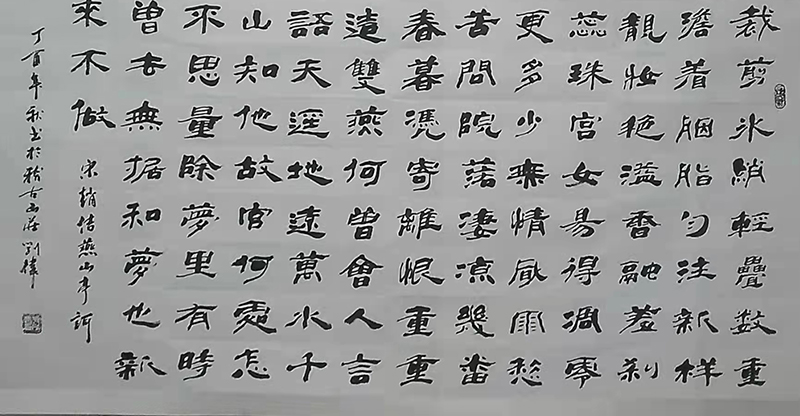 裁剪冰綃輕疊数重
澹着胭脂勻注新樣
靚妝艳溢香融羞剎
蕊珠宮女易得凋零
更多少無情風雨愁
苦問院落淒涼幾番
春暮憑寄離恨重重
這雙燕何曾會人言
語天遥地遠萬水千
山知他故宮何處怎
不思量除夢里有時
曾去無據和夢也新
來不做 宋趙佶燕山亭詞
丁酉年秋书於古山莊劉偉